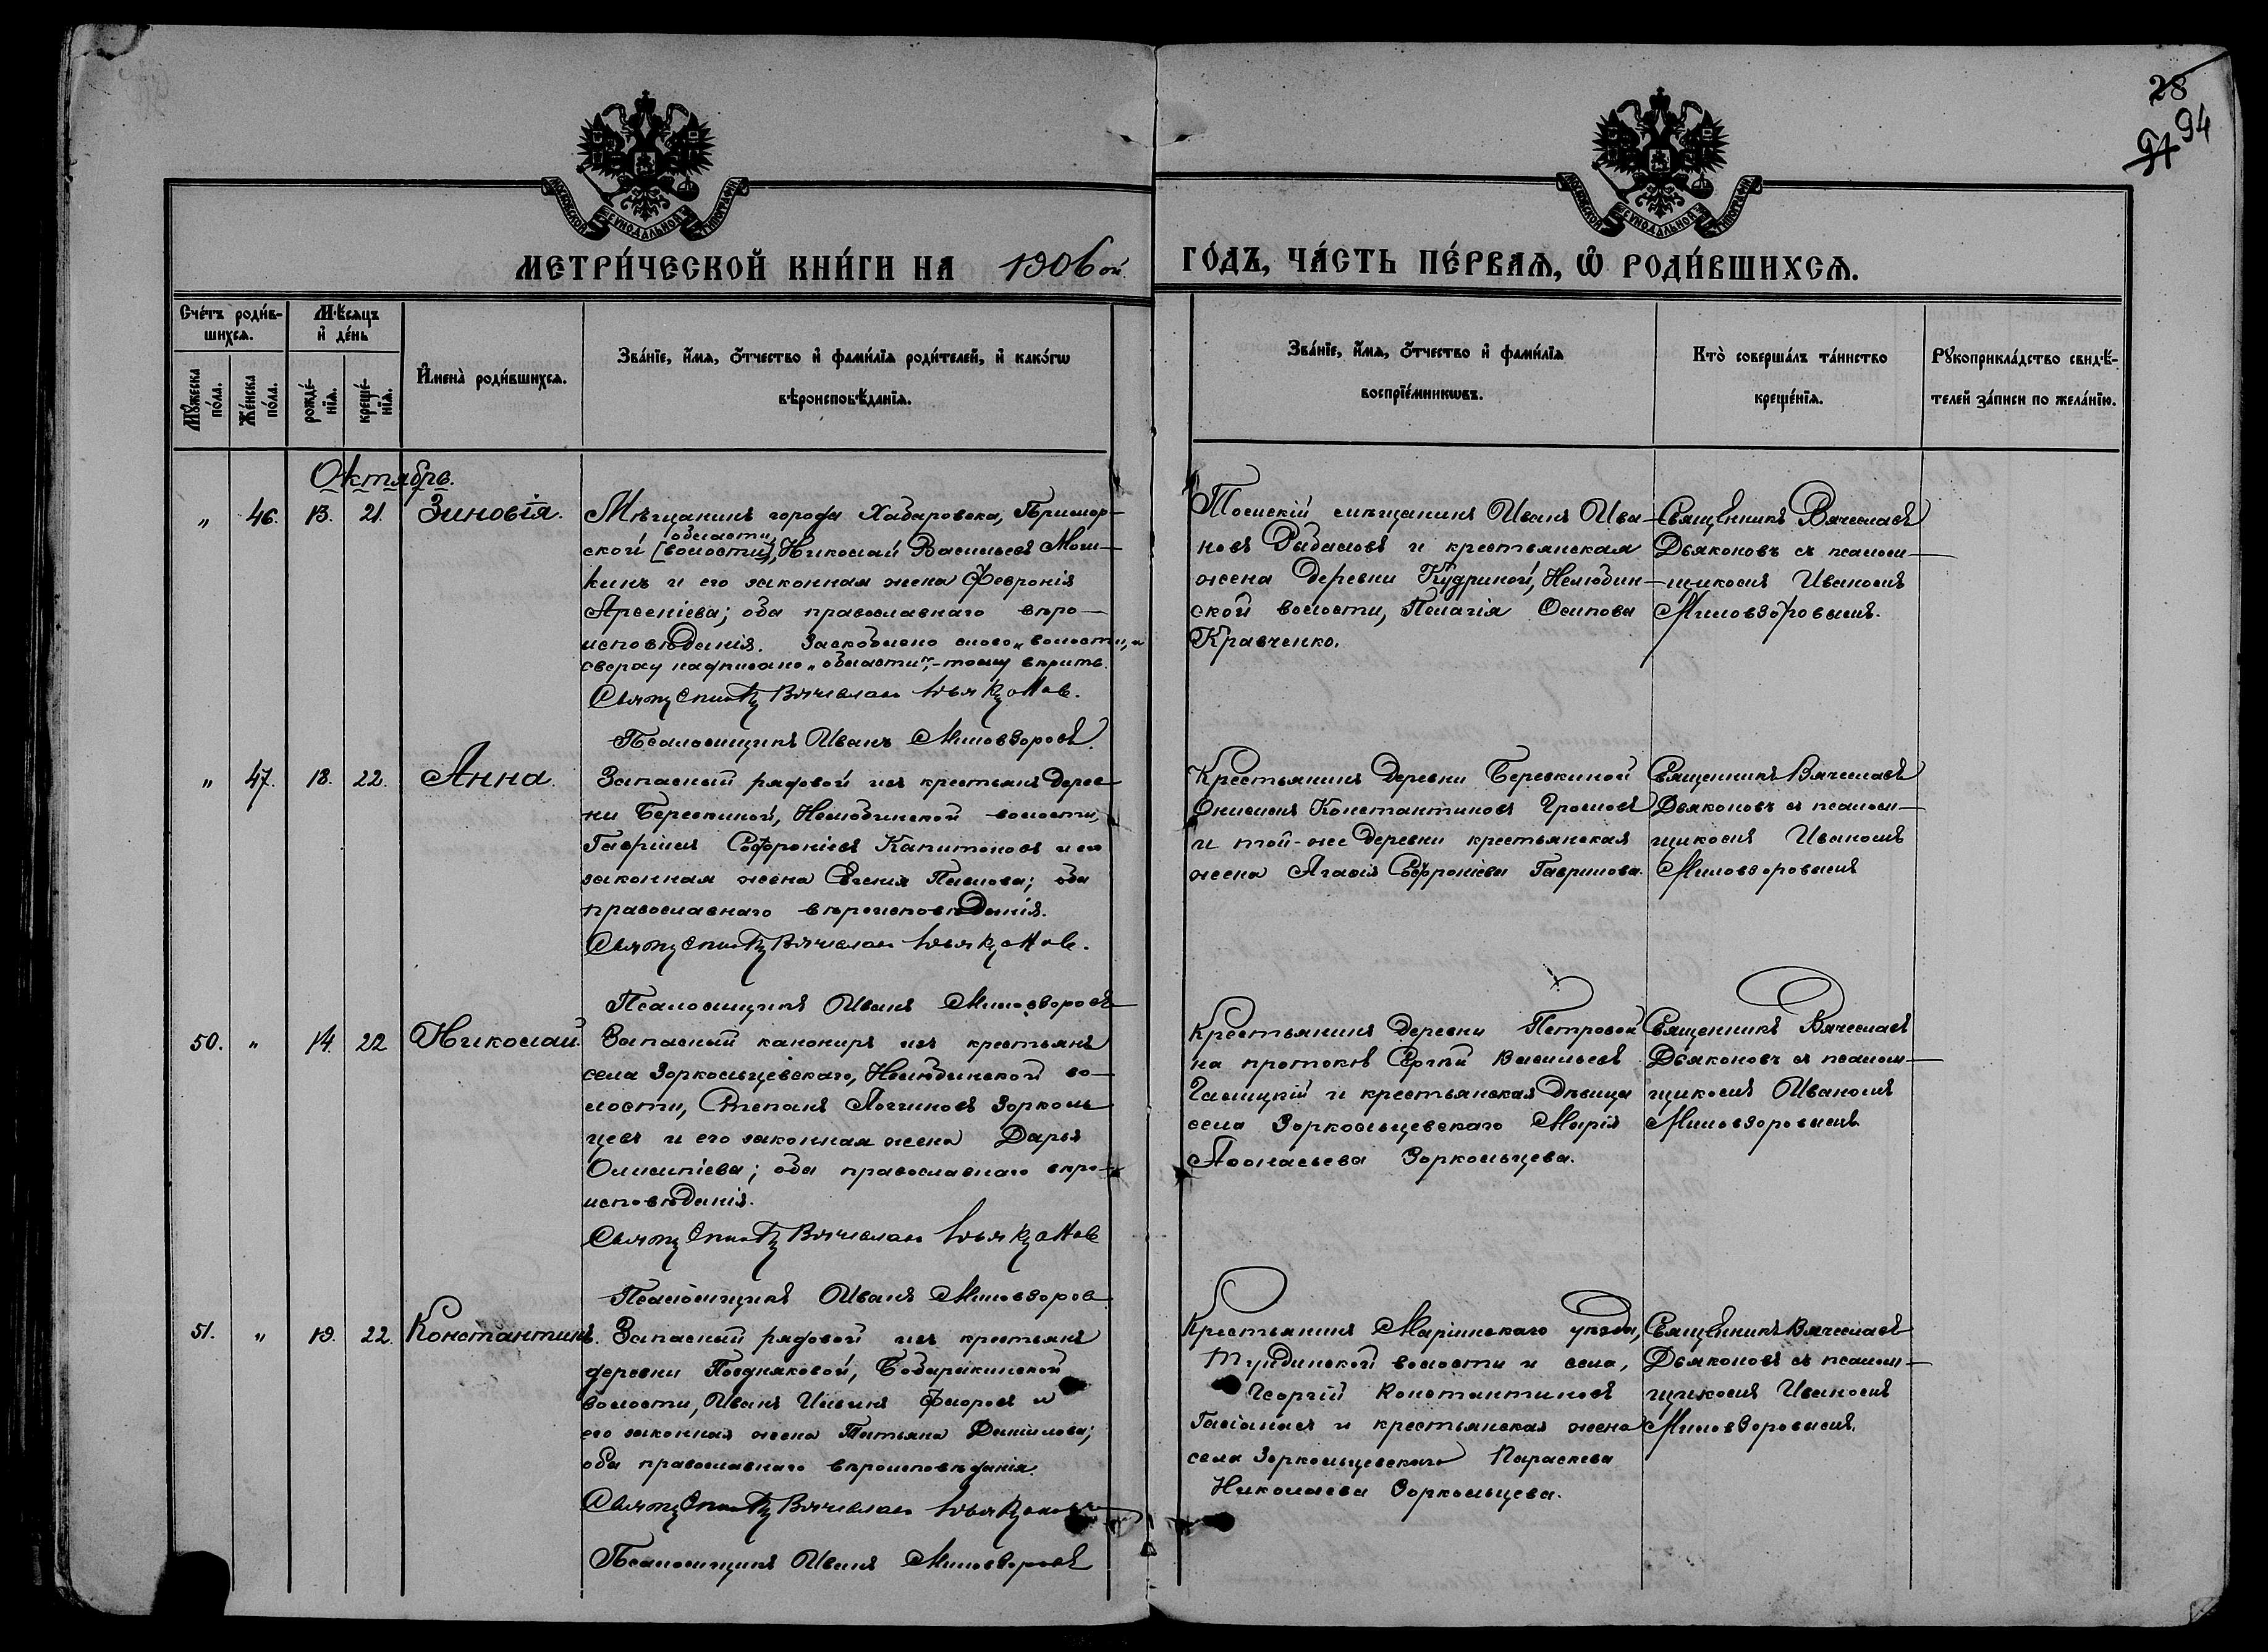 28
91 94
МОСКОВСКОЙ СѴНОДАЛЬНОЙ ТИПОГРАФІИ.
МОСКОВСКОЙ СѴНОДАЛЬНОЙ ТИПОГРАФІИ.
МЕТРИ́ЧЕСКОЙ КНИ́ГИ НА 1906 ой
ГО́ДЪ, ЧА́СТЬ ПЕ́РВАѦ, Ѿ РОДИ́ВШИХСѦ.
Сче́тъ роди́в-
шихсѧ.
Мѣ́сѧцъ
и҆ де́нь
Мꙋ́жеска по́ла.
Же́нска по́ла.
рожде́-
нїѧ.
креще́-
нїѧ.
И҆мена̀ роди́вшихсѧ.
Зва́нїе, и҆́мѧ, ѻ҆́тчество и҆ фами́лїѧ роди́телей, и҆ како́гѡ
вѣроисповѣ́данїѧ.
Зва́нїе, и҆́мѧ, ѻ҆́тчество и҆ фами́лїѧ
воспрїе́мникѡвъ.
Кто̀ соверша́лъ та́инство
креще́нїѧ.
Рꙋкоприкла́дство свидѣ́-
телей за́писи по жела́нїю.
Октябрь.
„ 46. 13. 21. Зиновія.
Мѣщанинъ города Хабаровска, Примор-
области,
ской [волости], Николай Васильевъ Мош-
кинъ и его законная жена Февронія
Арсеніева; оба православнаго вѣро-
исповѣданія. Заскоблено слово „волости, а
сверху надписано „области“,-тому вѣрить.
Священникъ Вячеславъ Дьяконовъ.
Псаломщикъ Иванъ Миловзоровъ.
Томскій мѣщанинъ Иванъ Ива-
новъ Рабаловъ и крестьянская
жена деревни Кудриной, Нелюбин-
ской волости, Пелагія Осипова
Кравченко.
Священникъ Вячеславъ
Дьяконовъ съ псалом-
щикомъ Иваномъ
Миловзоровымъ.
„ 47. 18. 22. Анна.
Запасный рядовой изъ крестьянъ дерев
ни Березкиной, Нелюбинской волости,
Гавріилъ Софроніевъ Капитоновъ и его
законная жена Евгенія Павлова; оба
православнаго вѣроисповѣданія.
Священникъ Вячеславъ Дьяконовъ.
Псаломщикъ Иванъ Миловзоровъ
Крестьянинъ деревни Березкиной
Онисимъ Константиновъ Громовъ
и той-же деревни крестьянская
жена Агафія Софроніева Гаврилова.
Священникъ Вячеславъ
Дьяконовъ съ псалом-
щикомъ Иваномъ
Миловзоровымъ
50. „ 14. 22 Николай.
Запасный канониръ изъ крестьянъ
села Зоркольцевскаго, Нелюбинской во-
лости, Степанъ Логгиновъ Зорколь
цевъ и его законная жена Дарья
Олимпіева; оба православнаго вѣро-
исповѣданія.
Священникъ Вячеславъ Дьяконовъ
Псаломщикъ Иванъ Миловзоровъ
Крестьянинъ деревни Петровой
на протокѣ Сергѣй Васильевъ
Галицкій и крестьянская дѣвица
села Зоркольцевскаго Марія
Аѳонасьева Зоркольцева.
Священникъ Вячеславъ
Дьяконовъ съ псалом-
щикомъ Иваномъ
Миловзоровымъ.
51. „ 19. 22. Константинъ.
Запасный рядовой изъ крестьянъ
деревни Поздняковой, Бабарыкинской
волости, Иванъ Ильинъ Флоровъ и
его законная жена Татьяна Данилова;
оба православнаго вѣроисповѣданія.
Священникъ Вячеславъ Дьяконовъ
Псаломщикъ Иванъ Миловзоровъ
Крестьянинъ Маріинскаго уѣзда,
волости и села,
Георгій Константиновъ
и крестьянская жена
села Зоркольцевскаго Параскева
Николаева Зоркольцева.
Священникъ Вячеславъ
Дьяконовъ съ псалом-
щикомъ Иваномъ
Миловзоровымъ.